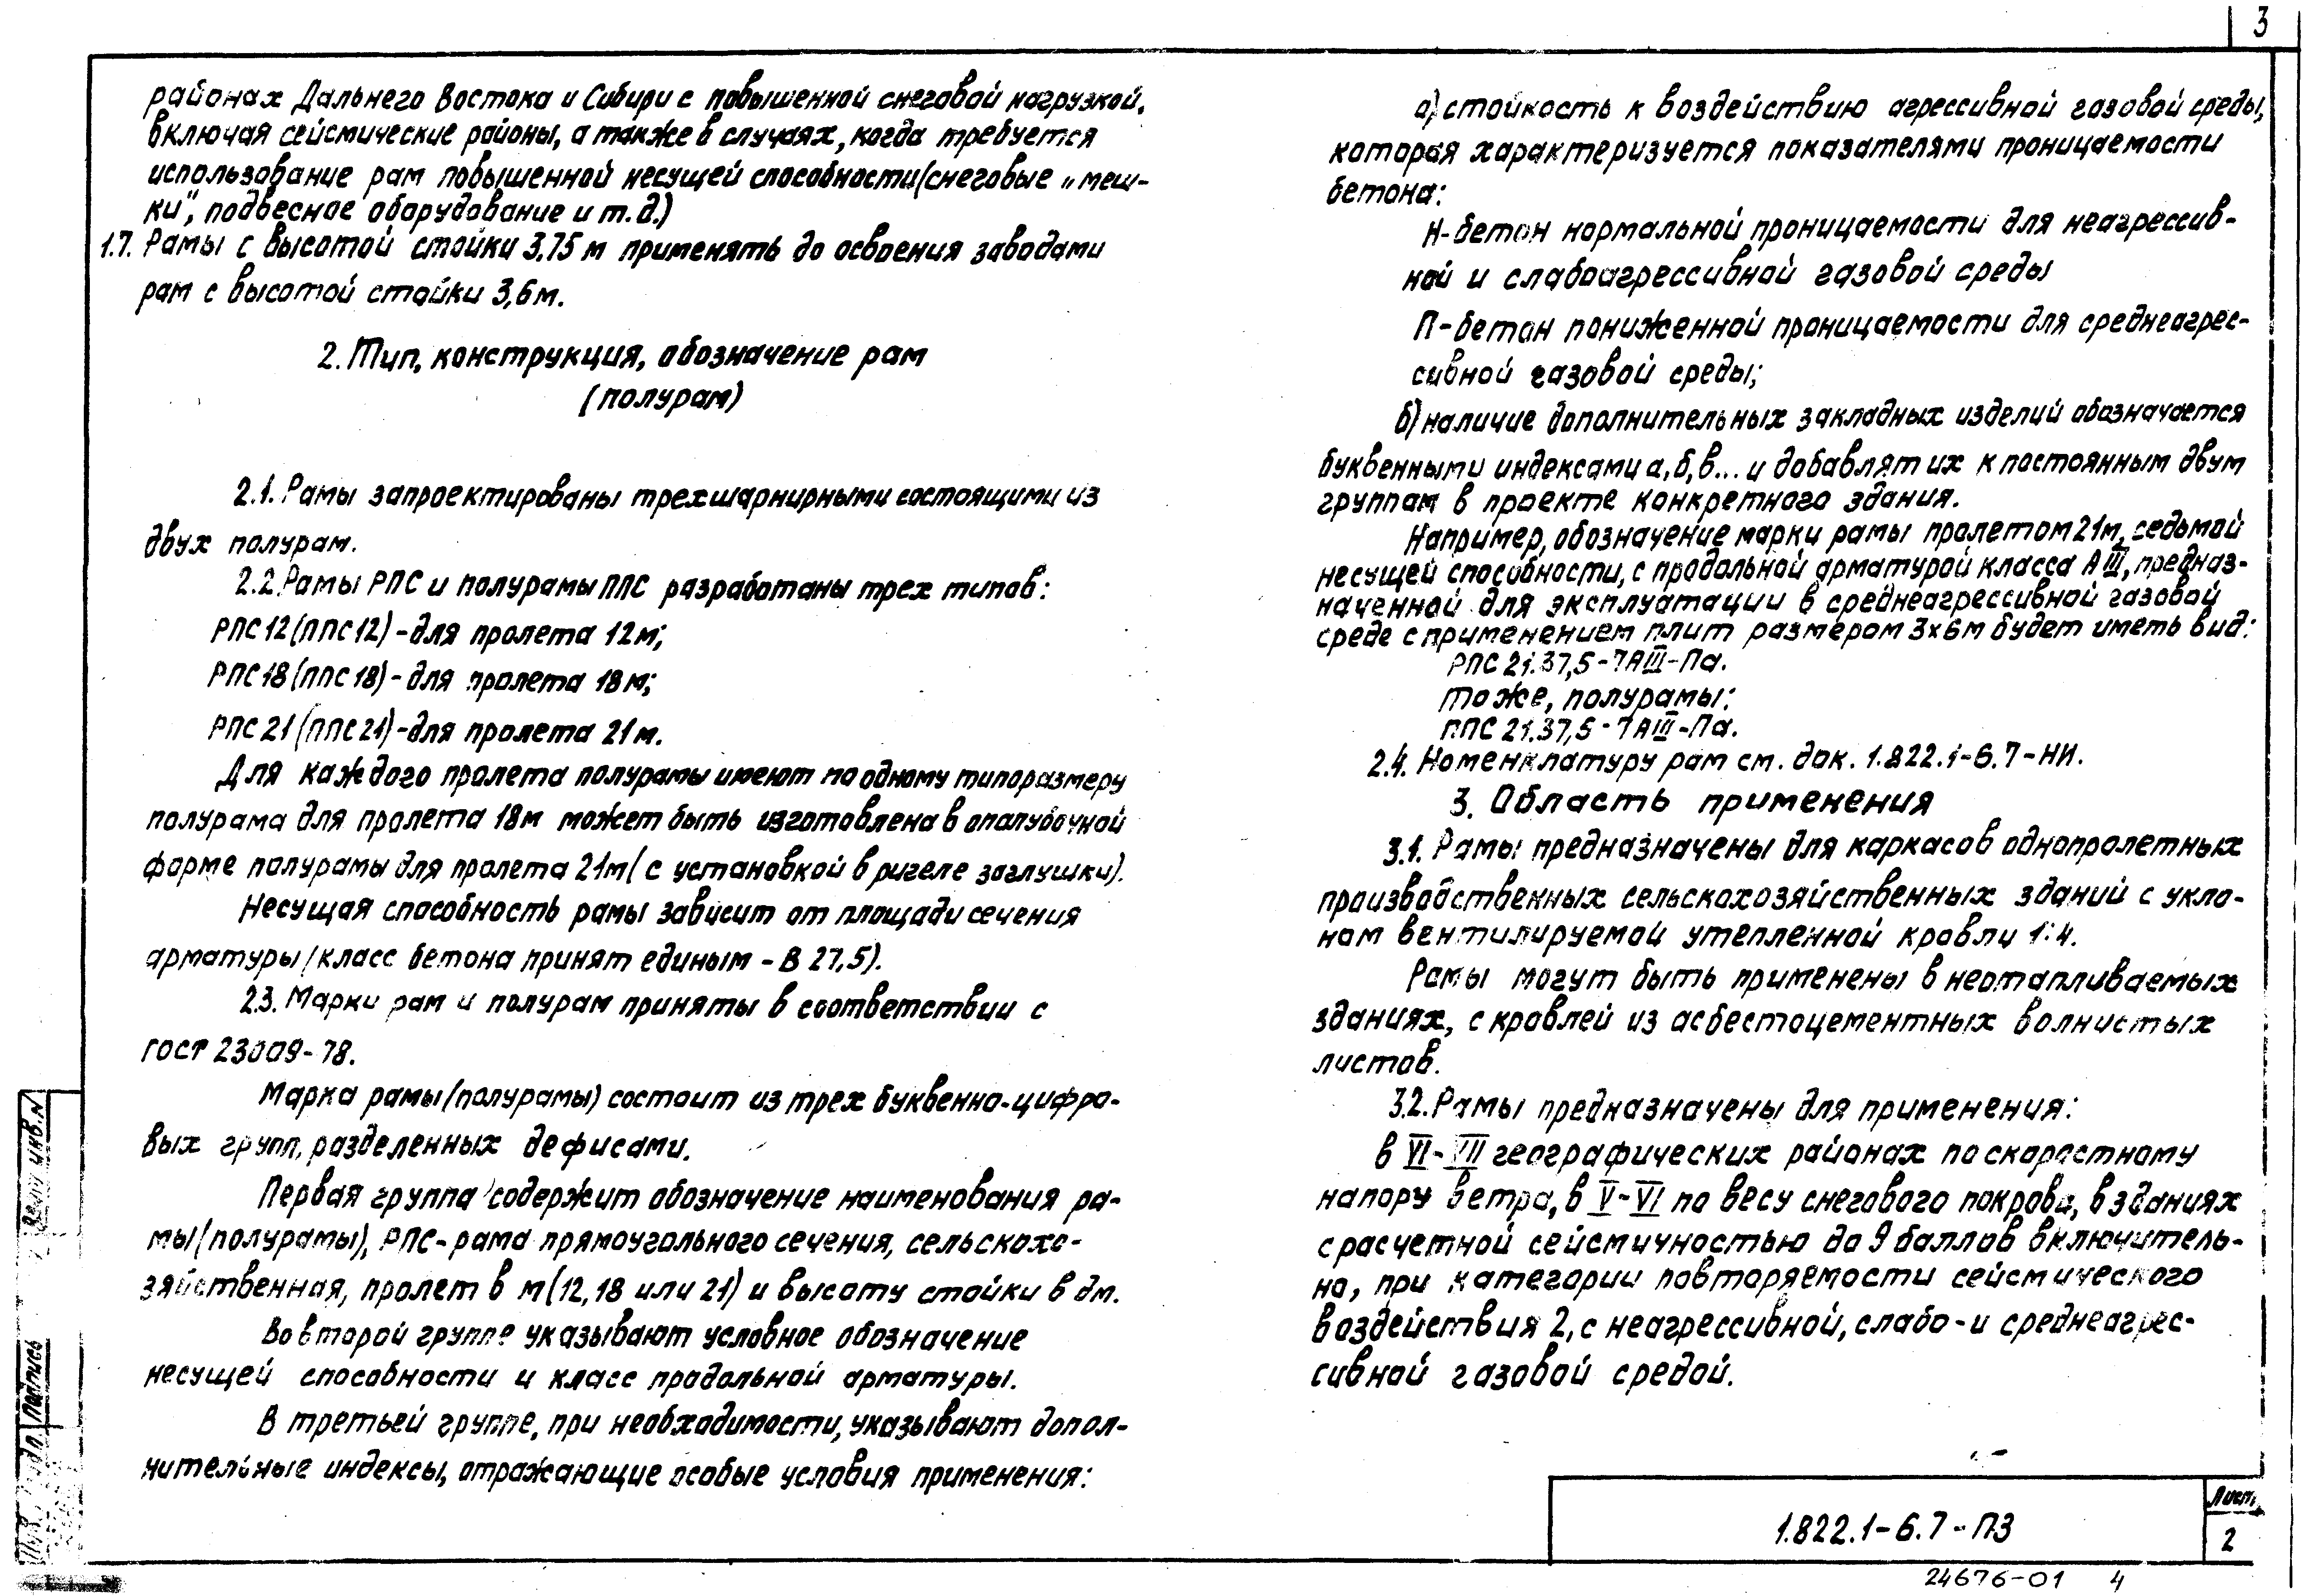 3
районах Дальнего Востока и Сибири с повышенной снеговой нагрузкой,
включая сейсмические районы, а также в случаях, когда требуется
использование рам повышенной несущей способности (снеговые „меш-
ки", подвесное оборудование и т.д.)
1.7. Рамы с высотой стойки 3,75 м применять до освоения заводами
рам с высотой стойки 3,6 м.
2. Тип, конструкция, обозначение рам
(полурам)
2.1. Рамы запроектированы трехшарнирными состоящими из
двух полурам.
2.2. Рамы РПС и полурамы ППС разработаны трех типов:
РПС 12 (ППС 12) - для пролета 12 м;
РПС 18 (ППС 18) - для пролета 18 м;
РПС 21 (ППС 21) - для пролета 21 м.
Для каждого пролета полурамы имеют по одному типоразмеру
полурама для пролета 18 м может быть изготовлена в опалубочной
форме полурамы для пролета 21 м (с установкой в ригеле заглушки).
Несущая способность рамы зависит от площади сечения
арматуры (класс бетона принят единым - В 27,5).
2.3. Марки рам и полурам приняты в соответствии с
ГОСТ 23009-78.
Марка рамы (полурамы) состоит из трех буквенно-цифро-
вых групп, разделенных дефисами.
Первая группа содержит обозначение наименования ра-
мы (полурамы), РПС - рама прямоугольного сечения, сельскохо-
зяйственная, пролет в м (12, 18 или 21) и высоту стойки в дм.
Во второй группе указывают условное обозначение
несущей способности и класс продольной арматуры.
В третьей группе, при необходимости, указывают допол-
нительные индексы, отражающие особые условия применения:
а) стойкость к воздействию агрессивной газовой среды,
которая характеризуется показателями проницаемости
бетона:
Н - бетон нормальной проницаемости для неагрессив-
ной и слабоагрессивной газовой среды
П - бетон пониженной проницаемости для среднеагрес-
сивной газовой среды;
б) наличие дополнительных закладных изделий обозначается
буквенными индексами а, б, в... и добавлят их к постоянным двум
группам в проекте конкретного здания.
Например, обозначение марки рамы пролетом 21 м, седьмой
несущей способности, с продольной арматурой класса А III, предназ-
наченной для эксплуатации в среднеагрессивной газовой
среде с применением плит размером 3х6 м будет иметь вид:
РПС 21.37,5 - 7АIII - Па.
то же, полурамы:
ППС 21.37,5 - 7АIII - Па.
2.4. Номенклатуру рам см. док. 1.822.1-6.7-НИ.
3. Область применения
3.1. Рамы предназначены для каркасов однопролетных
производственных сельскохозяйственных зданий с укло-
ном вентилируемой утепленной кровли 1:4.
Рамы могут быть применены в неотапливаемых
зданиях, с кровлей из асбестоцементных волнистых
листов.
3.2. Рамы предназначены для применения:
в VI - VII географических районах по скоростному
напору ветра, в V - VI по весу снегового покрова, в зданиях
с расчетной сейсмичностью до 9 баллов включитель-
но, при категории повторяемости сейсмического
воздействия 2, с неагрессивной, слабо- и среднеагрес-
сивной газовой средой.
инв. N
Подпись
1.822.1-6.7-ПЗ
Лист
2
24676-01 4